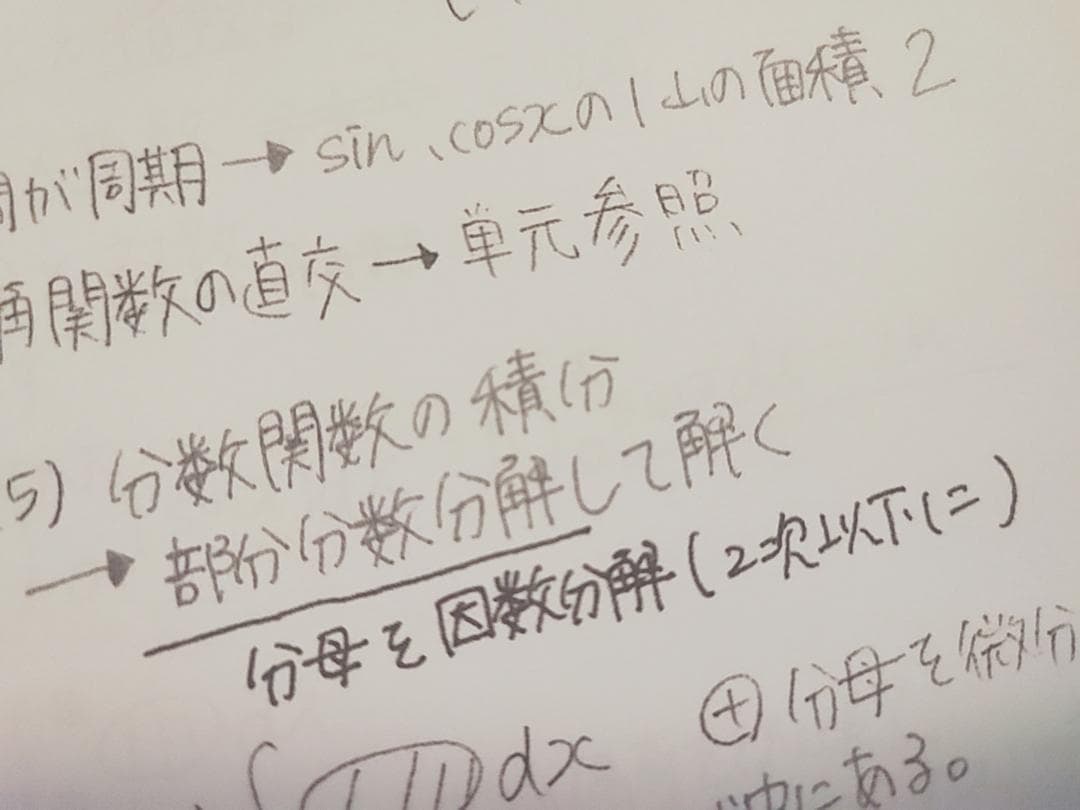 が周期→sin、cosxの1山の面積2
角関数の直交→単元参照
5) 分数関数の積分
→部分分数分解して解く
分母を因数分解(2次以下に)
⊕分母を微分
∫ dx
中にある。